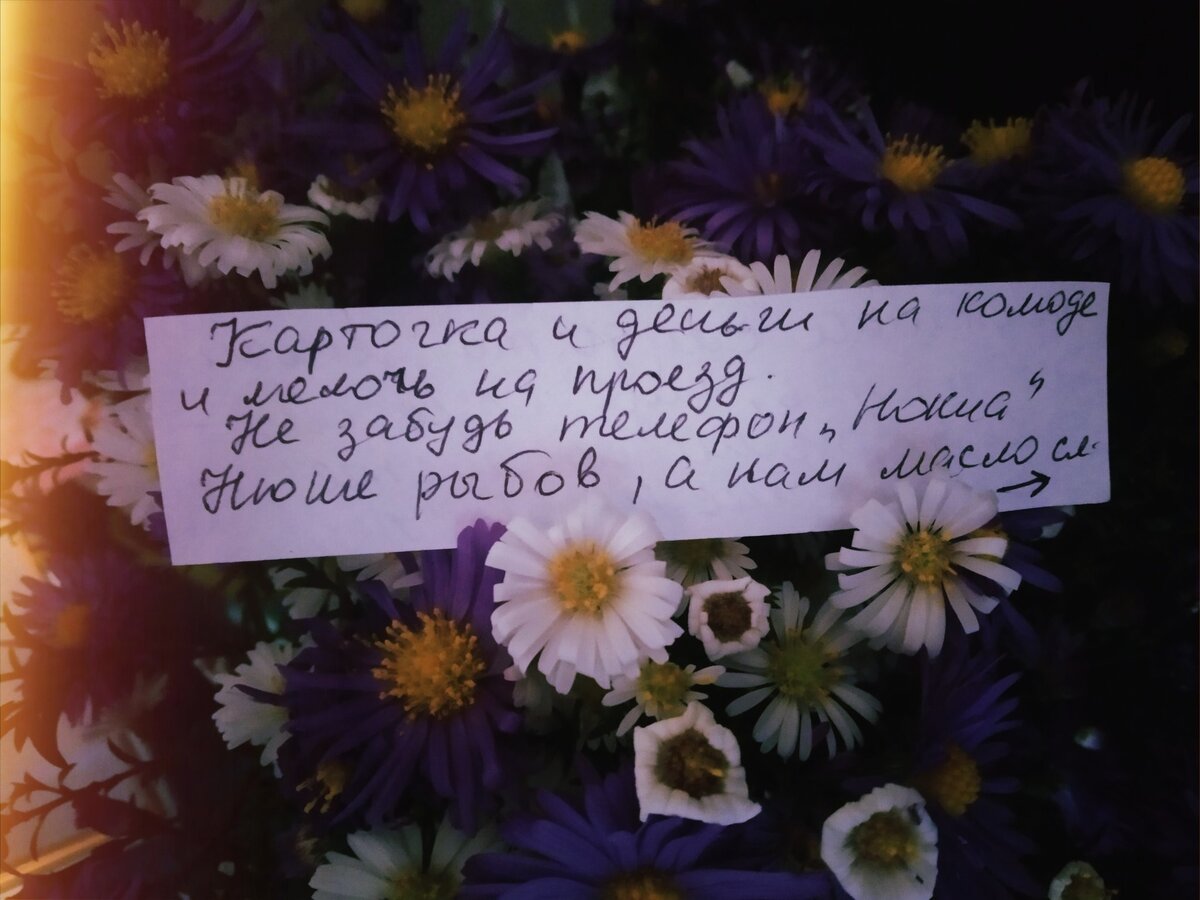 Карточка и деньги на комоде
и мелочь на проезд.
Не забудь телефон „Нокиа“
Нюше рыбов, а нам масло сл.
→